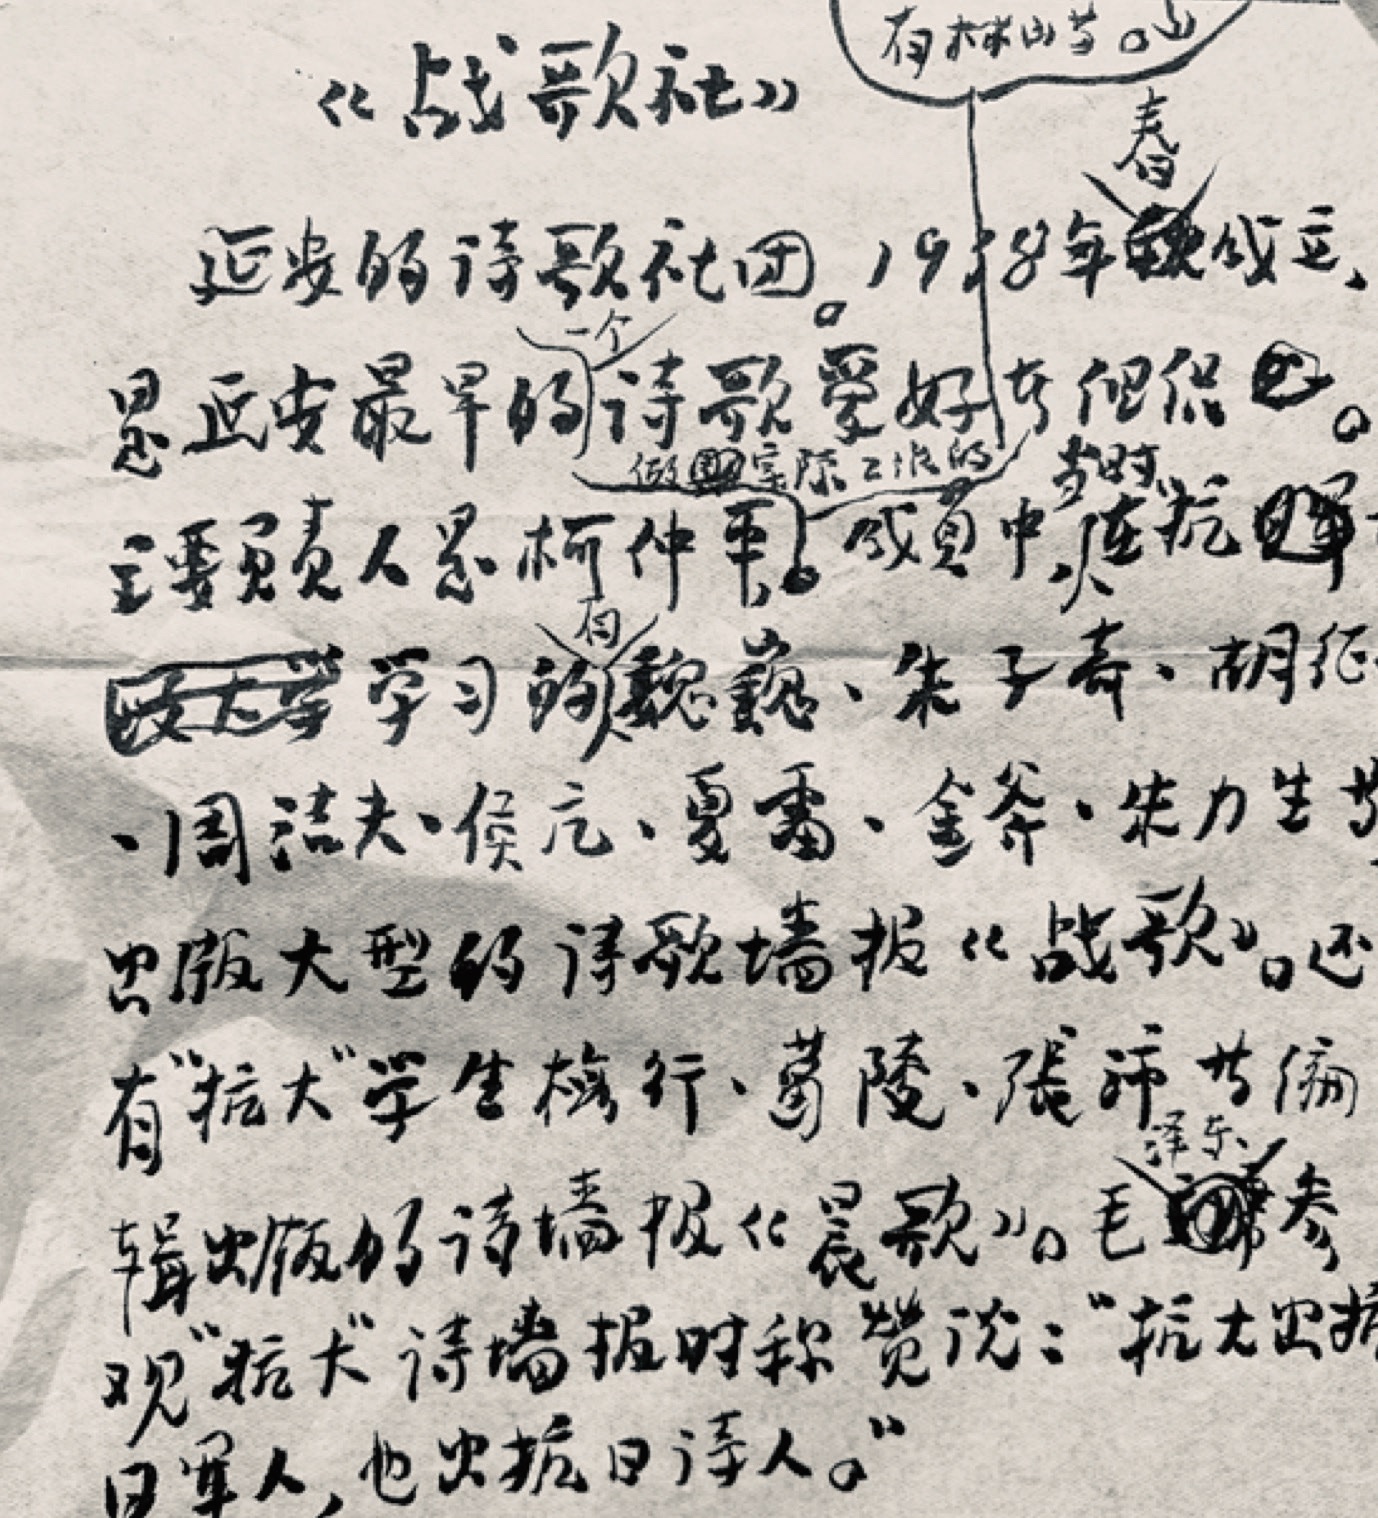 有林山等。
《战歌社》
春
延安的诗歌社团。1938年成立,
一个
是延安最早的诗歌爱好者组织。
做实际工作的
当时
主要负责人是柯仲平。成员中在"抗
有
学习的魏巍、朱子奇、胡征
、周洁夫、侯亢、夏雷、金斧、朱力生等
出版大型的诗歌墙报《战歌》。还
有"抗大"学生 行、葛陵、张沛等编
泽东
辑出版的诗墙报《晨歌》。毛参
观"抗大"诗墙报时称赞说:"抗大出抗
日军人,也出抗日诗人。"